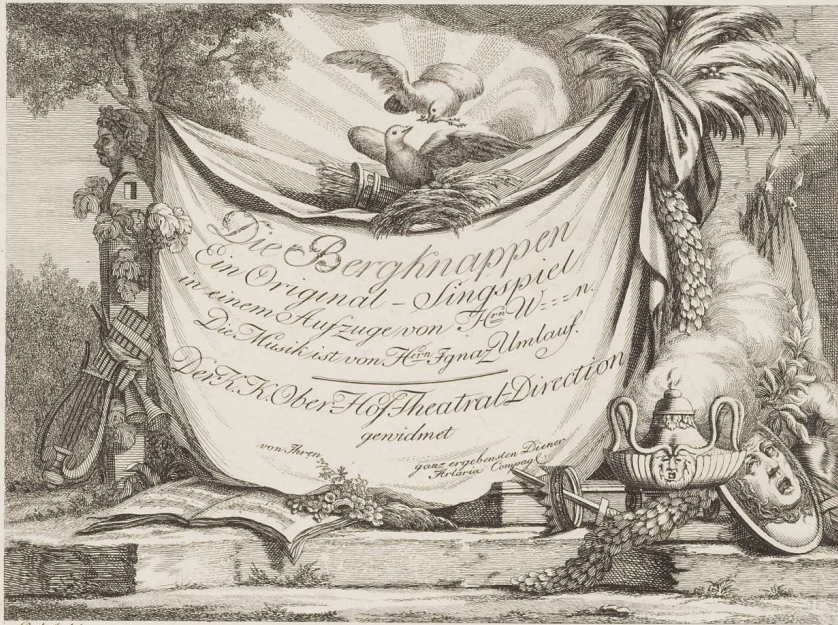 Die Bergknappen
Ein Original-Singspiel
in einem Aufzuge von Hrn W===n.
Die Musik ist von Hrn Ignaz Umlauf.
Der K. K. Ober-Hof Theatral-Direction
gewidmet
von Ihren
ganz ergebensten Diener
Artaria Compag